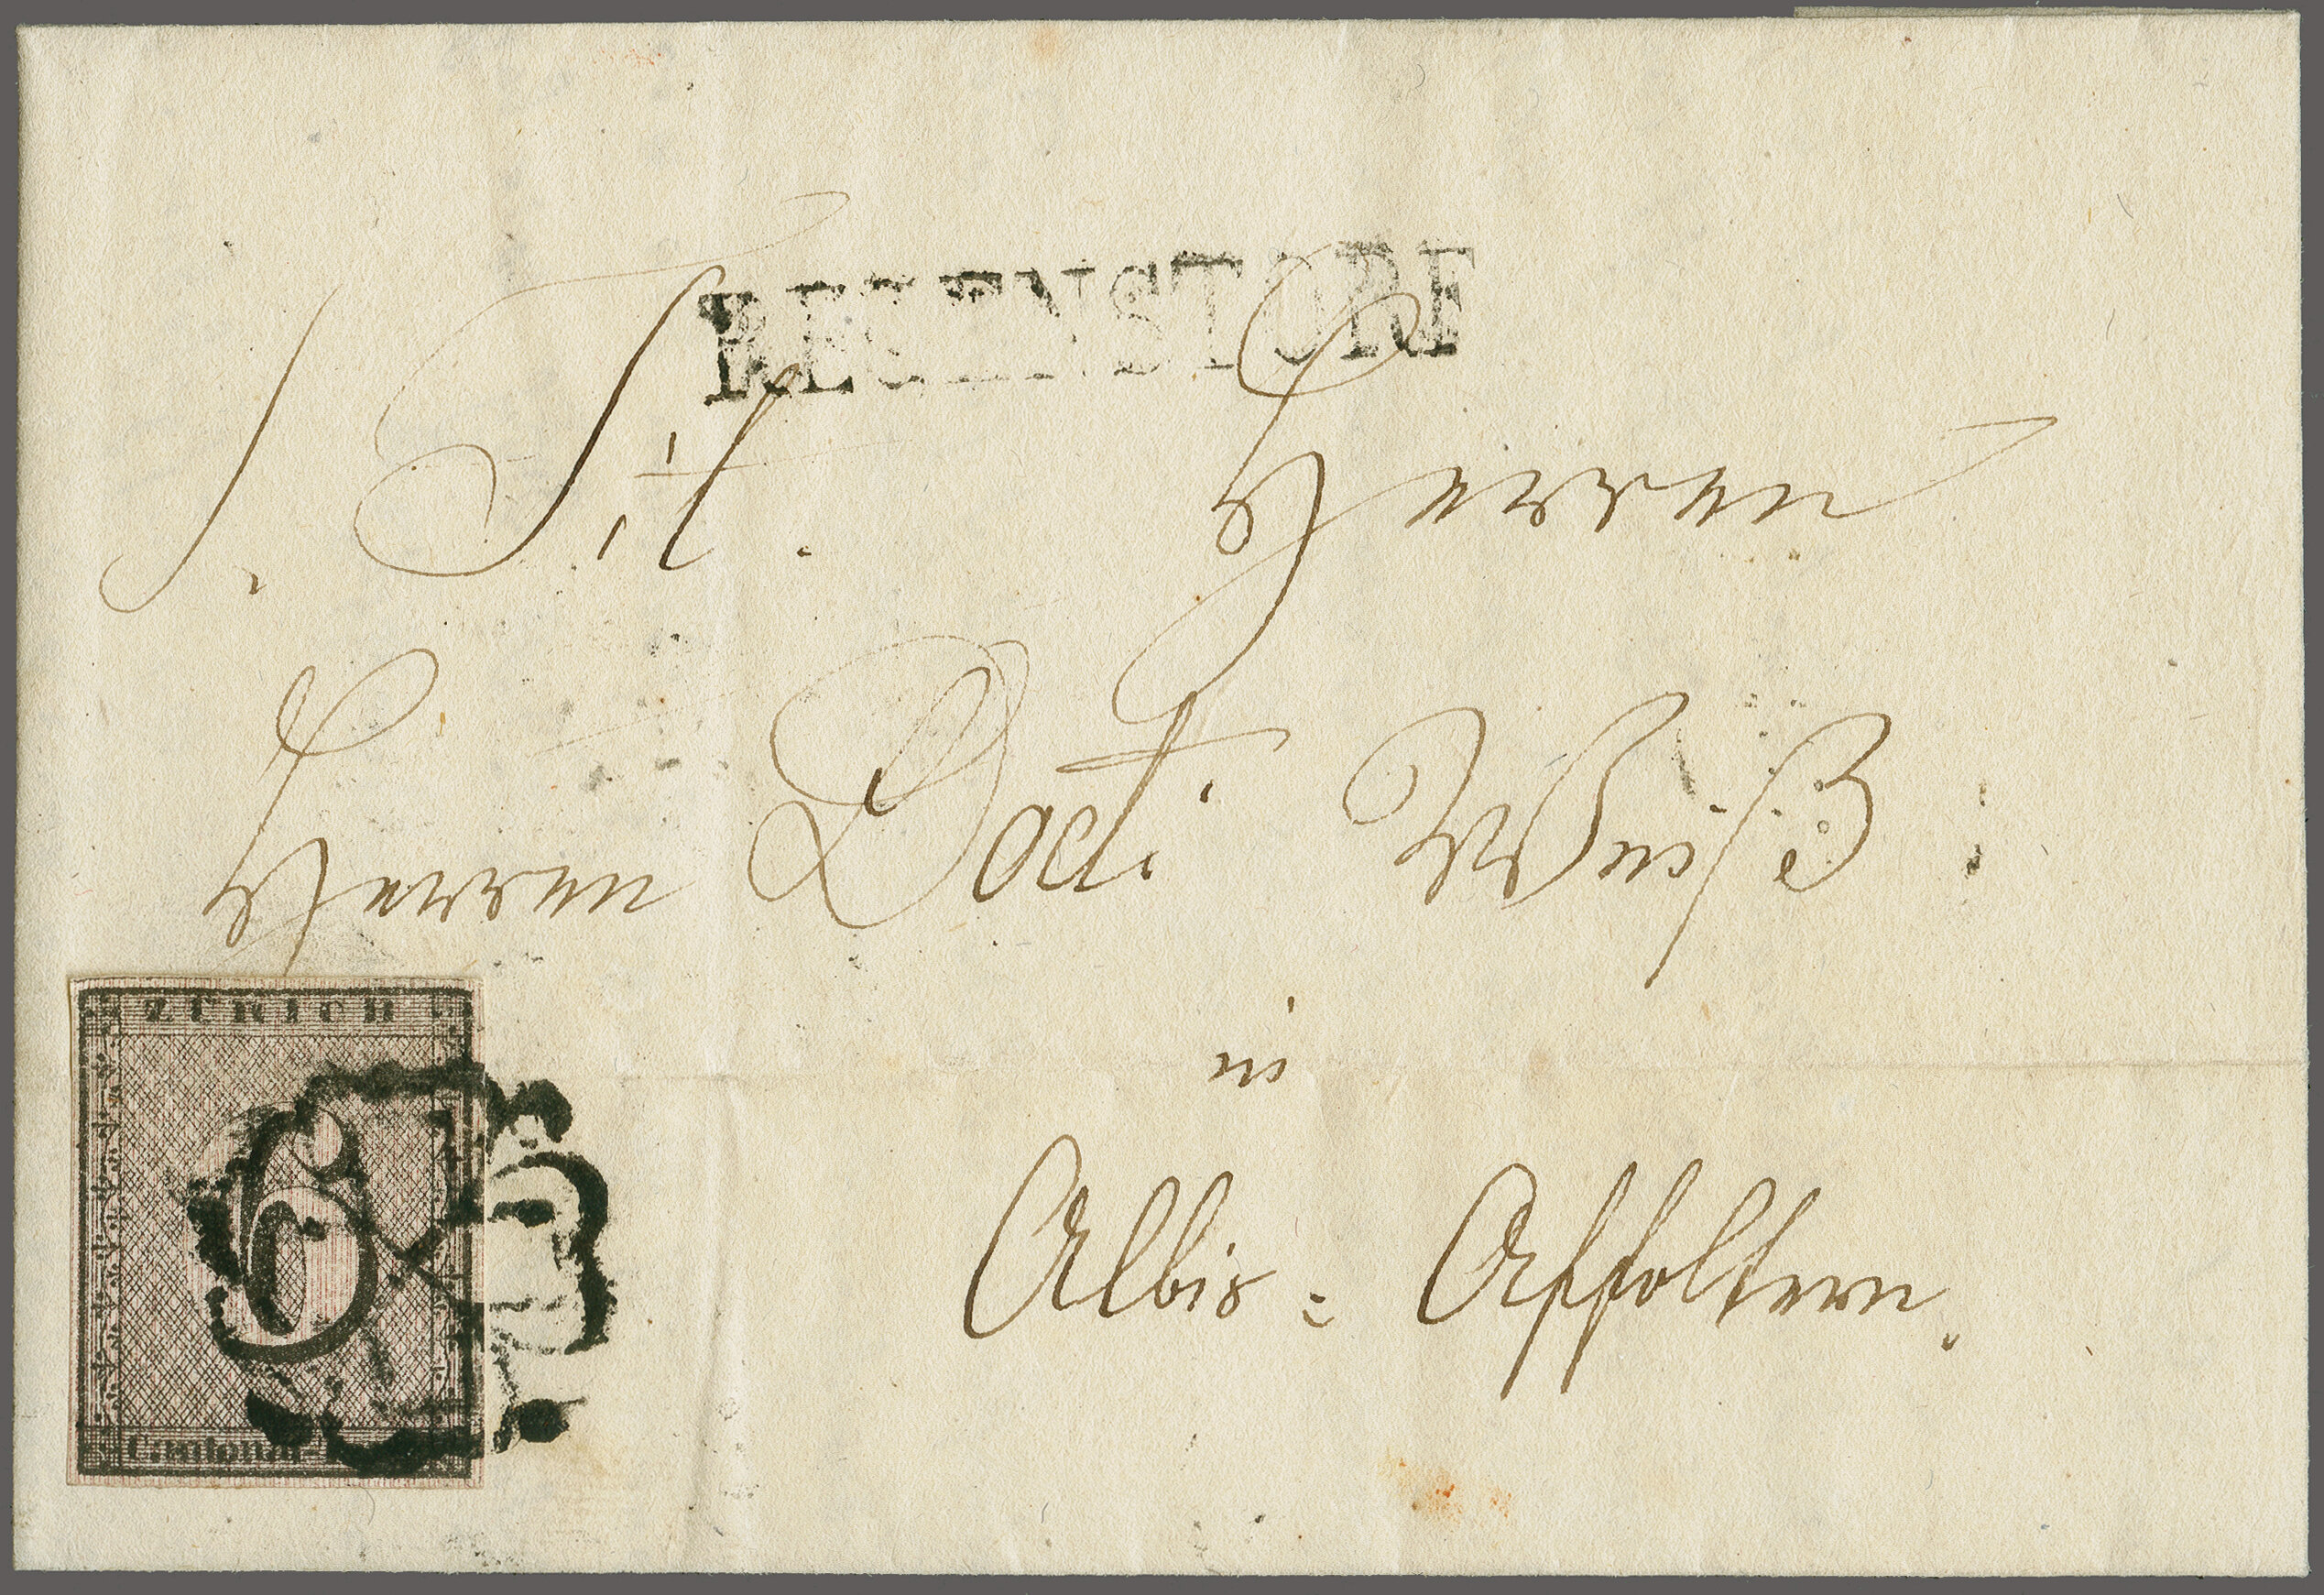 REGENSTORF
S. Tit. Herrn
Herrn Doct.
in
Albis = Affoltern.
ZÜRICH
6
Cantonal-